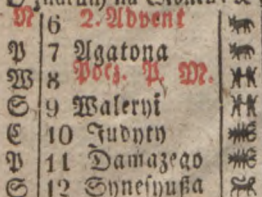 N 6 2. Advent
P 7 Agatona
W 8 Pocz. P. M.
S 9 Waleryi
C 10 Judyty
P 11 Damazego
S 12 Synesyusza